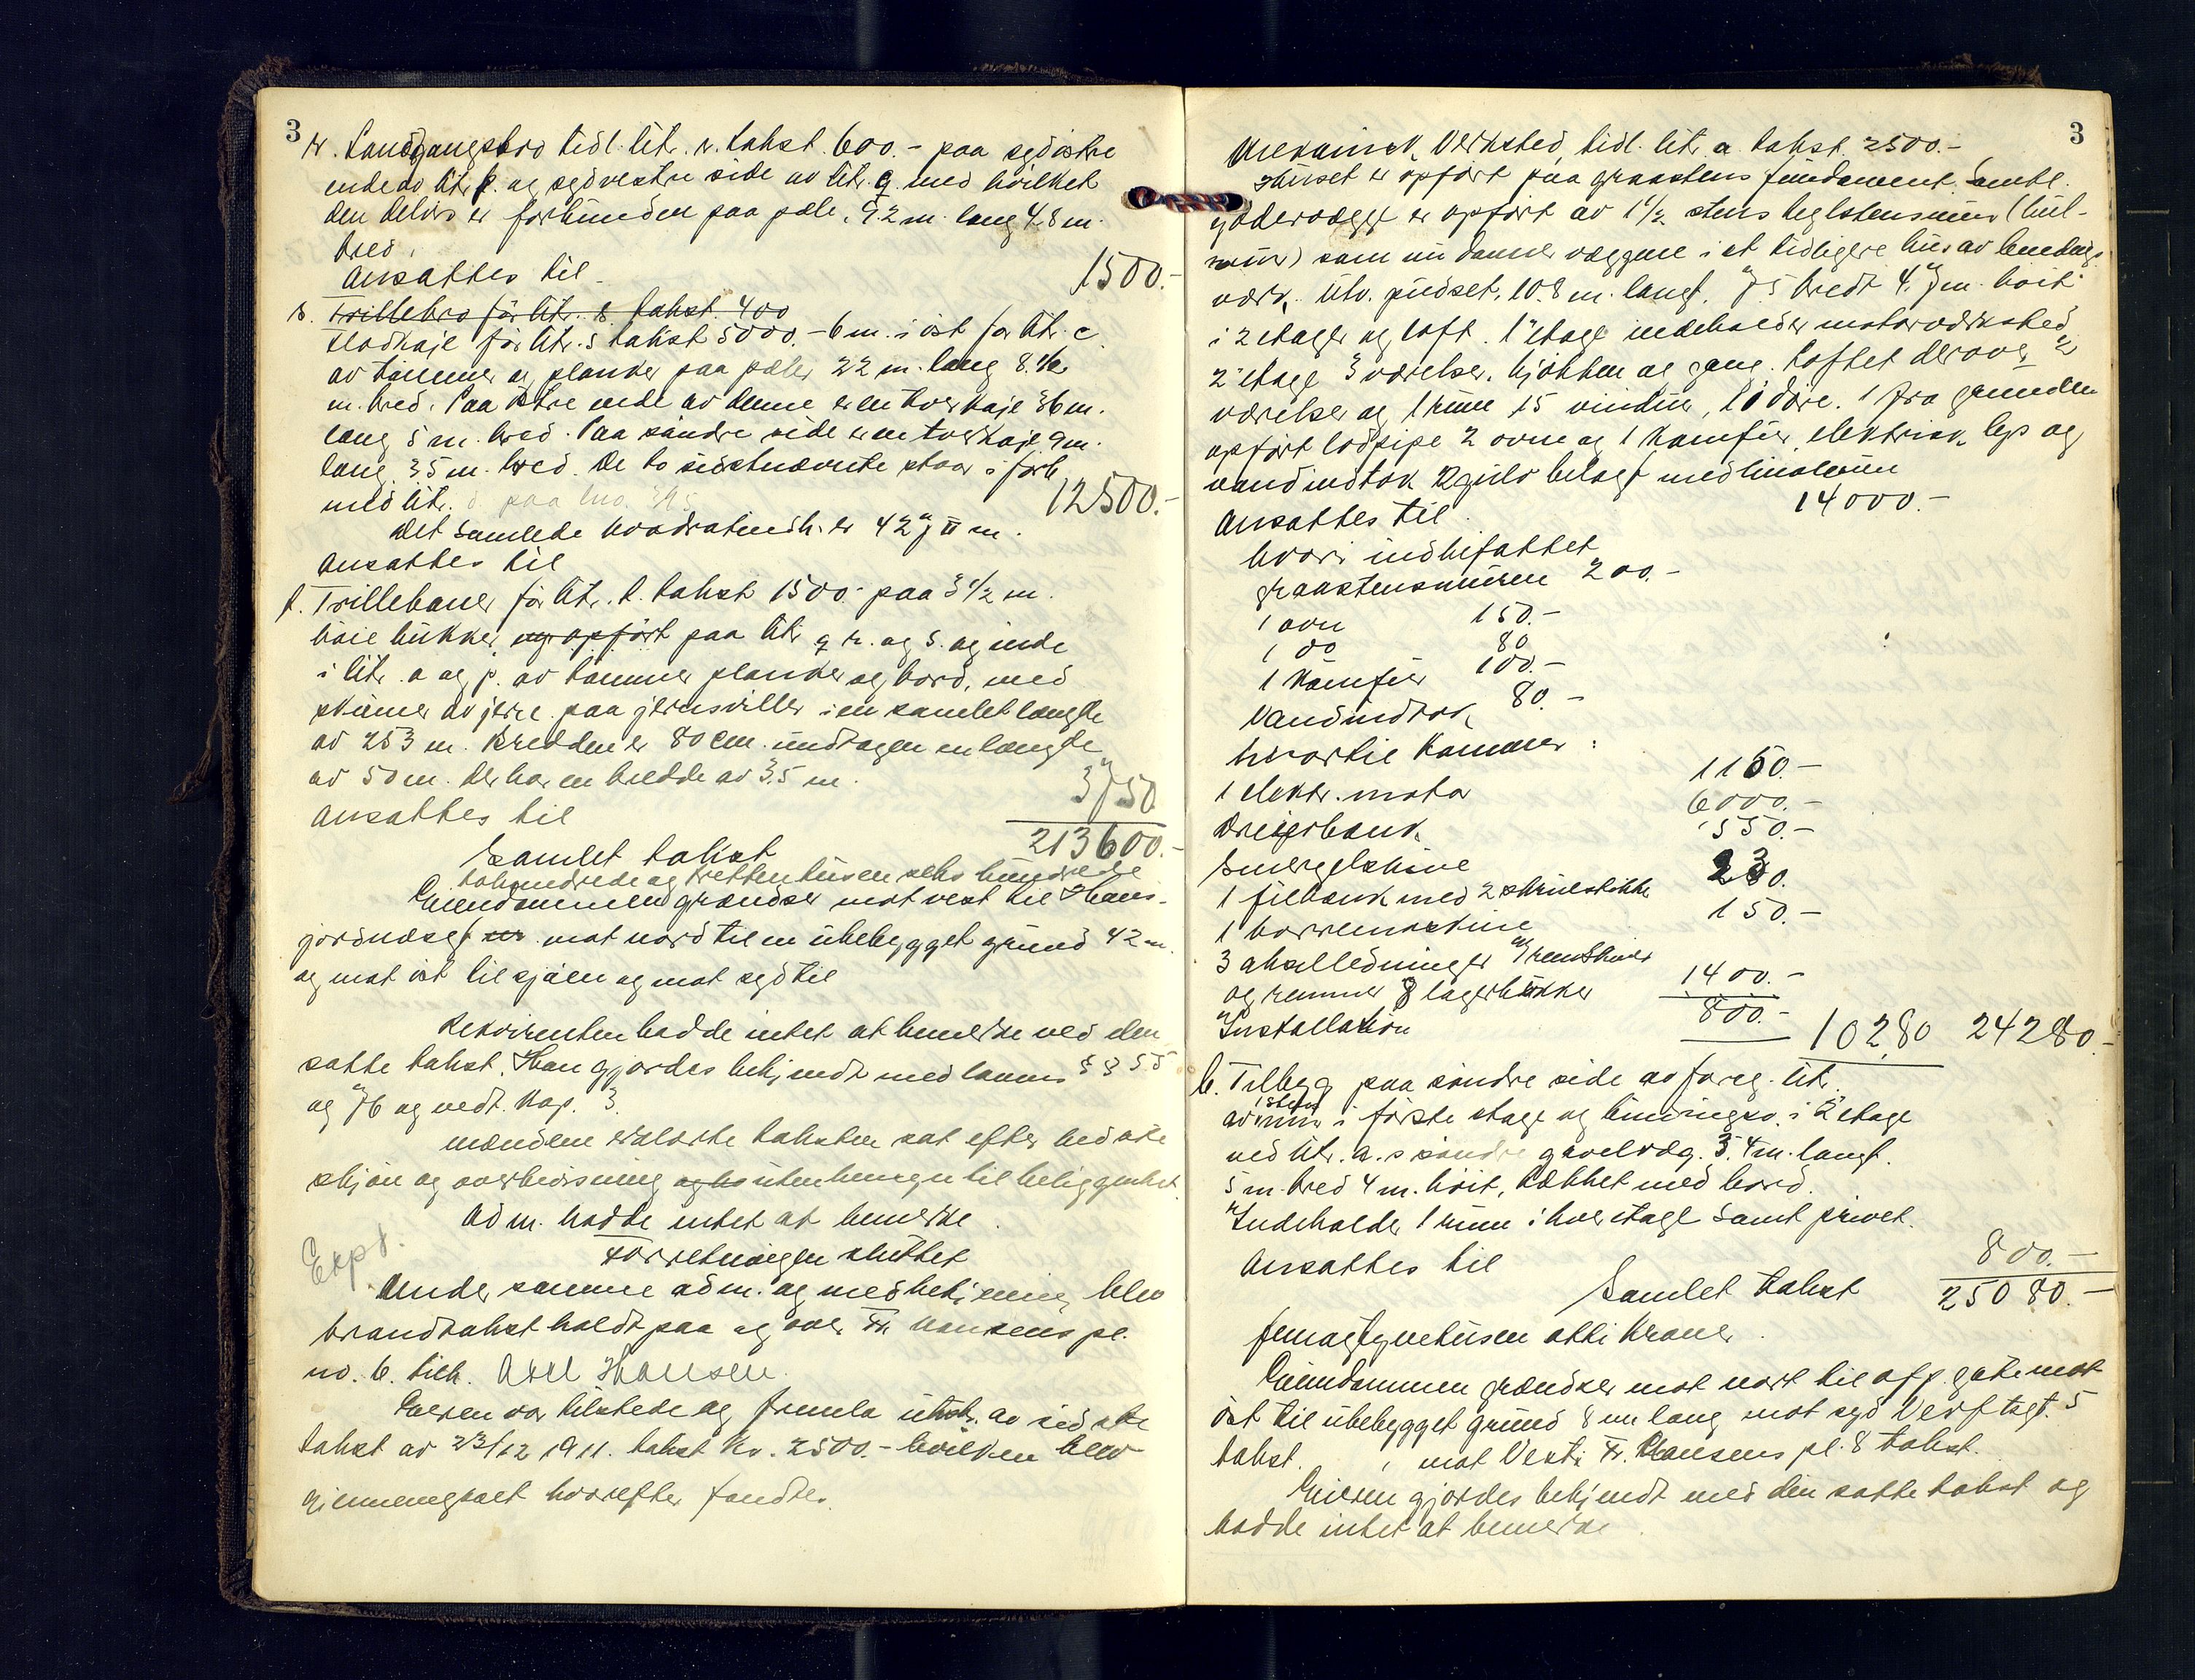 3
r. Landgangsbro tidl. litr. r. takst 600.- paa sydøstre
ende av litr. p. og sydvestre side av litr. q. med hvilket
den delvis er forbunden paa pæle. 9.2 m. lang 4.8 m.
bred.
Ansattes til 1500.-
s. Trillebro før litr. s. takst. 400
Flodkaje før litr. s takst 5000.- 6 m. i øst for litr. c.
av tømmer og planker paa pæler 22 m. lang 8.
m. bred. Paa østre ende av denne er en tverkaje 36 m.
lang 5 m. bred. Paa søndre side er en tverkaje 9 m.
lang. 3.5 m. bred. De to sidstnævnte staar i forb
med litr. d. paa
Det samlede kvadratindh. er 427 □ m. 12500.-
Ansattes til
t. Trillebaner før litr. t. takst 1500.- paa 3 1/2 m.
høie bukker, ny opført paa litr q r. og s. og inde
i litr. a og p. av tømmer planker og bord, med
skinner av jerne paa jernsviller i en samlet længde
av 253 m. Bredden er 80 cm. undtagen en længde
av 50 m. der har en bredde av 3.5 m.
Ansattes til 3750
Samlet takst 213600.-
tohundrede og trettentusen seks hundrede
Eiendommen grændser mot vest til Hans-
gordnæset mot nord til en ubebygget grund 42 m.
og mot øst til sjøen og mot syd til
Rekvirenten hadde intet at bemerke ved den
satte takst. Han gjordes bekjendt med lovens §§ 55
og 76 og vedt. kap. 3.
Mændene erklærte taksten sat efter bedste
skjøn og overbevisning uten hensyn til beliggenhet.
Adm. hadde intet at bemerke.
Forretningen sluttet
Exp.
Under samme adm. og med betjening blev
brandtakst holdt paa og over Fr. Hansens pl.
no. 6. tilh. Axel Hansen.
Eieren var tilstede og fremla utskr. av sidste
takst av 23/12 1911. takst kr. 2500.- hvilken blev
gjennemgaaet hvorefter fandtes
3
Mekanisk Verksted, tidl. litr. a takst 2500.-
Huset er opført paa graastens fundament. Samtl.
ydervægge er opført av 1 1/2 stens teglstensmur (hul-
mur) som nu danner væggene i et tidligere hus av bindings
verk. Utv. pudset. 10.8 m. langt. 7.5 bredt 4.7 m. høit
i 2 etager og loft. 1' etage indeholder motorverksted
2' etage 3 værelser, kjøkken og gang. Loftet derover 2
værelser og 1 rum 15 vinduer, 10 døre. 1 fra grunden
opført lodpipe 2 ovne og 1 komfur, elektrisk lys og
vandindtak 2 gulv belagt med linoleum
Ansattes til 14000.-
hvori indbefattet
graastensmuren 200.-
1 ovn 150.-
1 do 80
1 komfur 100.-
Vandindtak 80.-
hvortil kommer:
1 elektr. motor 1150.-
Dreierbenk 6000.-
Smergelskive 550.-
1 filbenk med 2 skruestikke 230.
1 borremaskine 150.-
3 akselledninger m/ remskiver
og remmer 8 lagerbukker 1400.-
Installation 800.-
10280 24280.-
b. Tilbygg paa søndre side av foreg. litr.
av 1 stens mur i første etage og bindingsv. i 2' etage
ved litr. a. s søndre gavelvæg. 3.4 m. langt.
5 m. bred 4 m. høit, tækket med bord.
Indeholder 1 rum i hver etage samt privet.
Ansattes til 800.-
Samlet takst 25080.-
femogtyvetusen otti kroner.
Eiendommen grændser mot nord til off. gate mot
øst til ubebygget grund 8 m lang mot syd Verftsgt. 5
takst. , mot Vest: Fr. Hansens pl. 8 takst.
Eieren gjordes bekjendt med den satte takst og
hadde intet at bemerke.